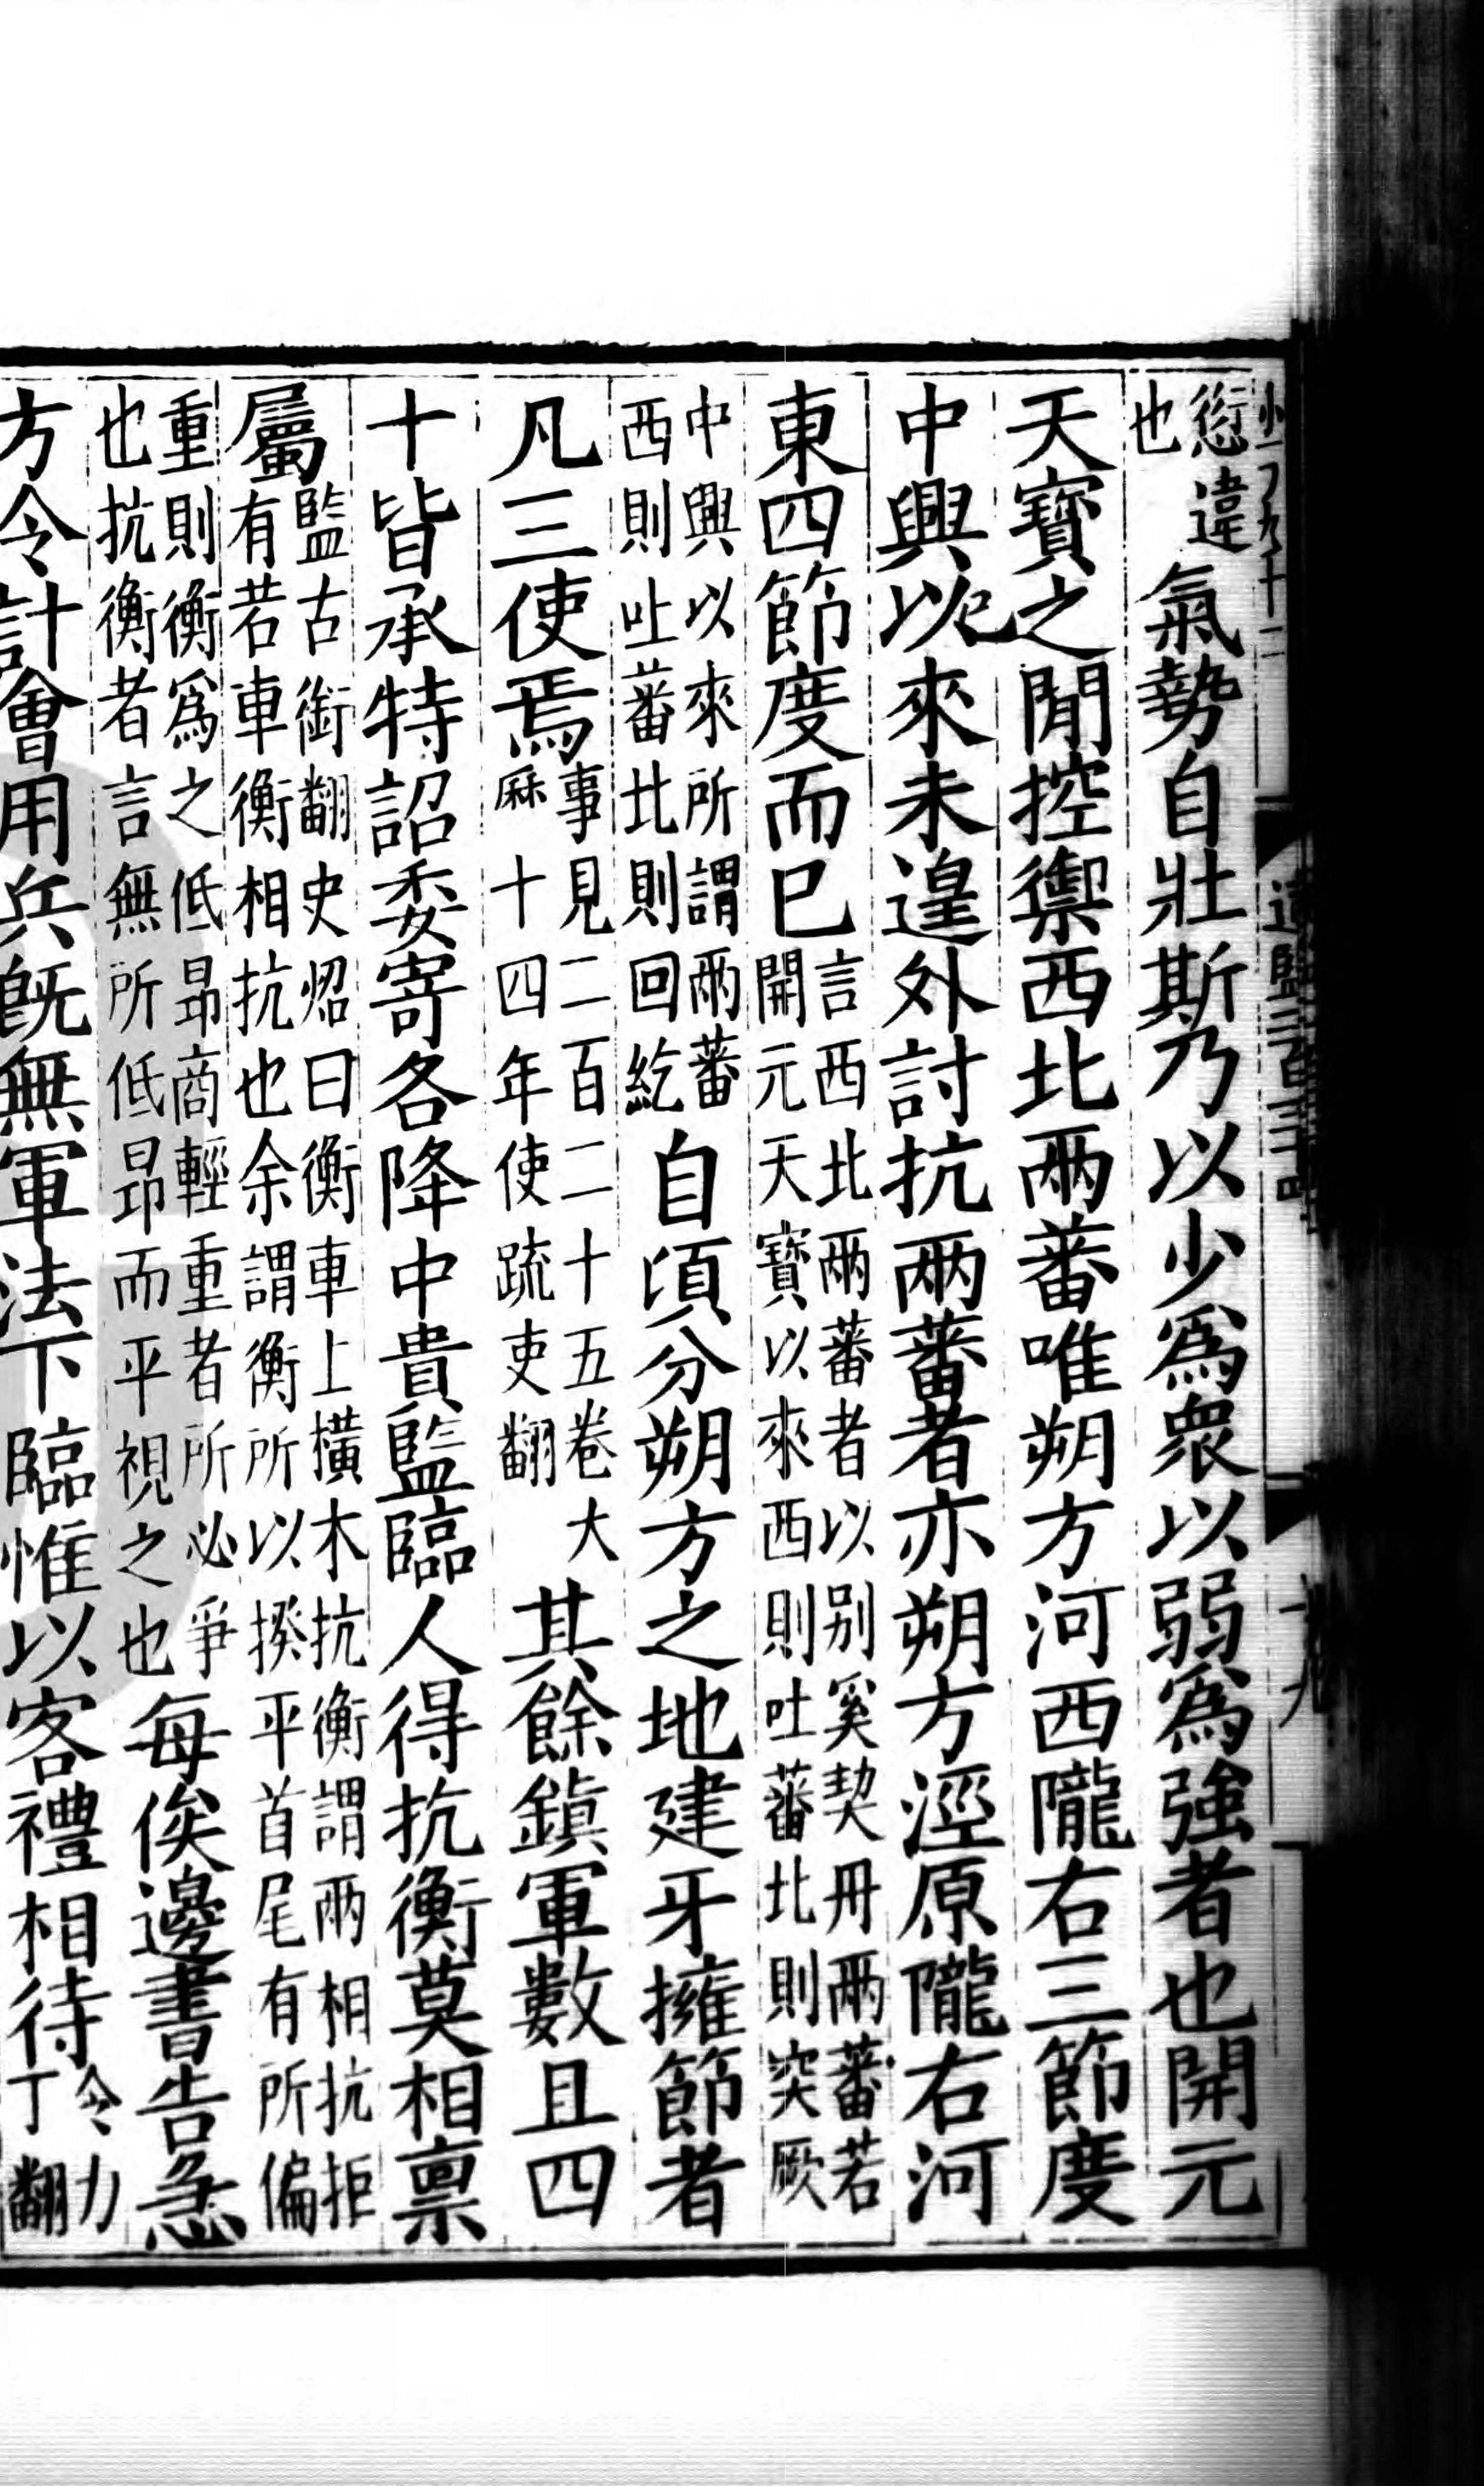 愆違
也
氣勢自壯斯乃以少爲衆以弱爲強者也開元
天寶之閒控禦西北兩蕃唯朔方河西隴右三節度
中興以來未遑外討抗兩蕃者亦朔方涇原隴右河
東四節度而已
言西北兩蕃者以别奚契丹兩蕃若
開元天寶以來西則吐蕃北則突厥
中興以來所謂兩蕃
西則吐蕃北則回紇
自頃分朔方之地建牙擁節者
凡三使焉
事見二百二十五卷大
厤十四年使疏吏翻
其餘鎭軍數且四
十皆承特詔委寄各降中貴監臨人得抗衡莫相禀
屬
監古銜翻史炤曰衡車上橫木抗衡謂兩相抗拒
有若車衡相抗也余謂衡所以揆平首尾有所偏
重則衡爲之低昂商輕重者所必爭
也抗衡者言無所低昂而平視之也
每俟邊書告急
方令計會用兵既無軍法下臨惟以客禮相待
令力
丁翻